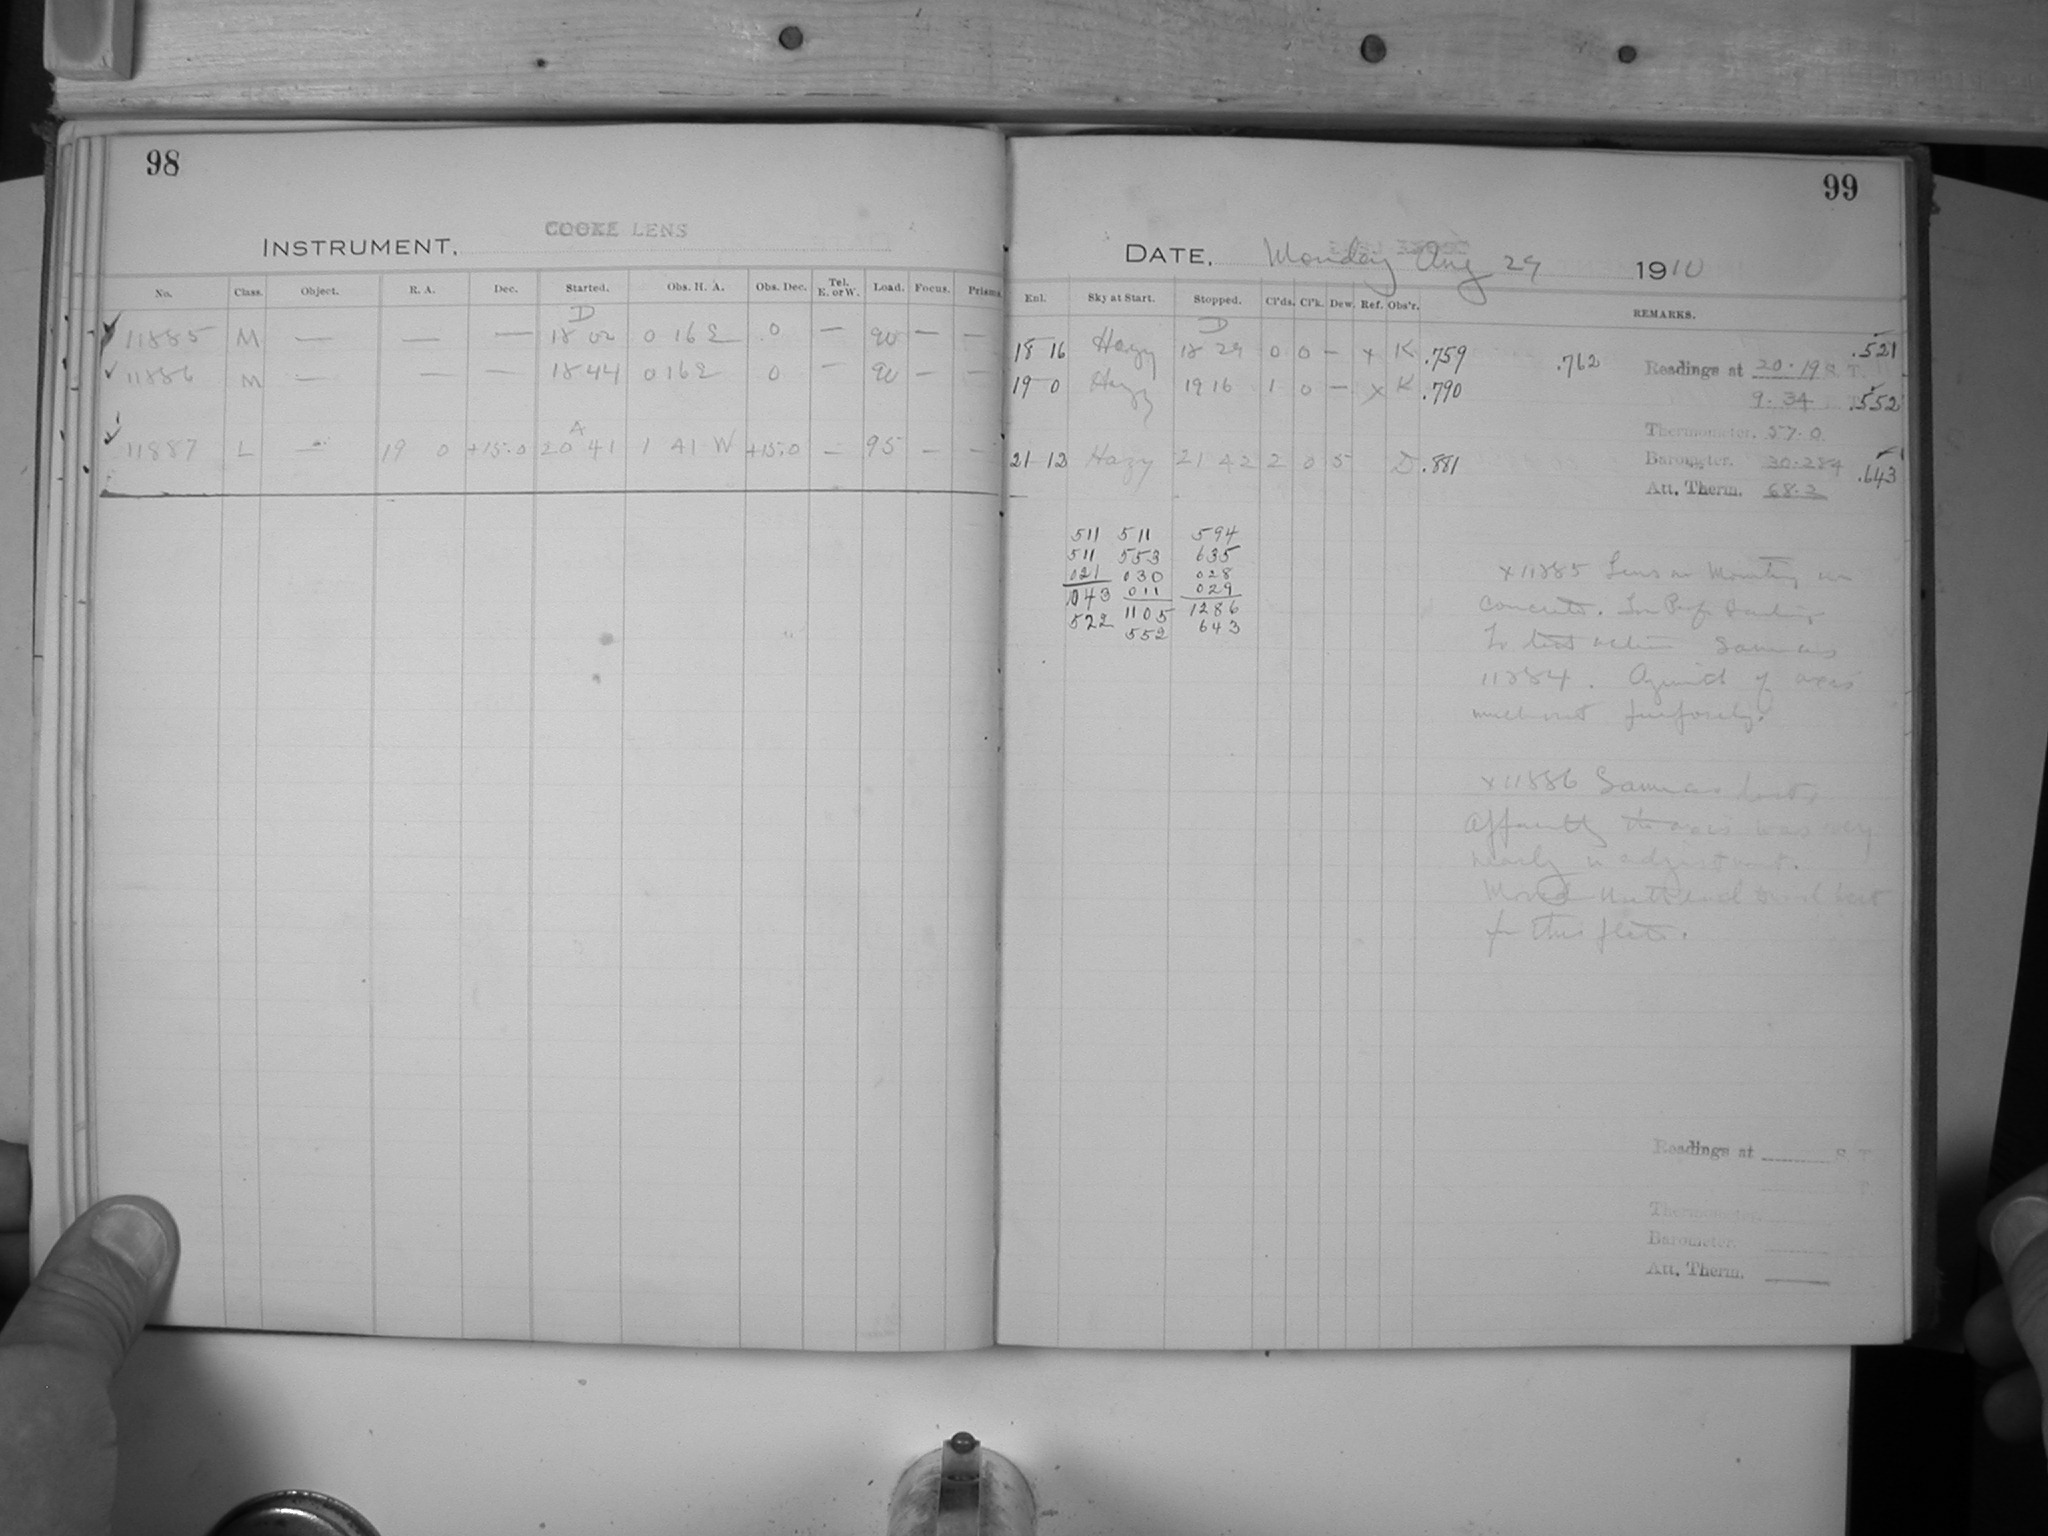 98
INSTRUMENT, COOKE LENS
No. Class. Object. R. A. Dec. Started. Obs. H. A. Obs. Dec. Tel. E. or W. Load. Focus. Prisms
D
✓ 11885 M — — — 18 02 0 16 E 0 — 90 — —
✓ 11886 M — — — 18 44 0 16 E 0 — 90 — —
A
✓ 11887 L — 19 0 +15.0 20 41 1 41 W +15.0 — 95 — —
99
DATE, Monday Aug 29 1910
Enl. Sky at Start. Stopped. Cl'ds. Cl'k. Dew. Ref. Obs'r. REMARKS.
D
18 16 Hazy 18 29 0 0 — x K .759 .762 .521
19 0 Hazy 19 16 1 0 — x K .790 .552
21 12 Hazy 21 42 2 0 5 D .881 .643
Readings at 20.19 S. T.
9.34
Thermometer. 57.0
Barometer. 30.284
Att. Therm. 68.2
511 511 594
511 553 635
021 030 028
1043 011 029
522 1105 1286
552 643
x 11885 Lens on Mounting in
concrete. For Prof
To test Same as
11884. of axis
purposely.
x 11886 Same as last.
Apparently the axis was very
nearly in adjustment.
Moved
for this plate.
Readings at S. T.
T.
Thermometer.
Barometer.
Att. Therm.